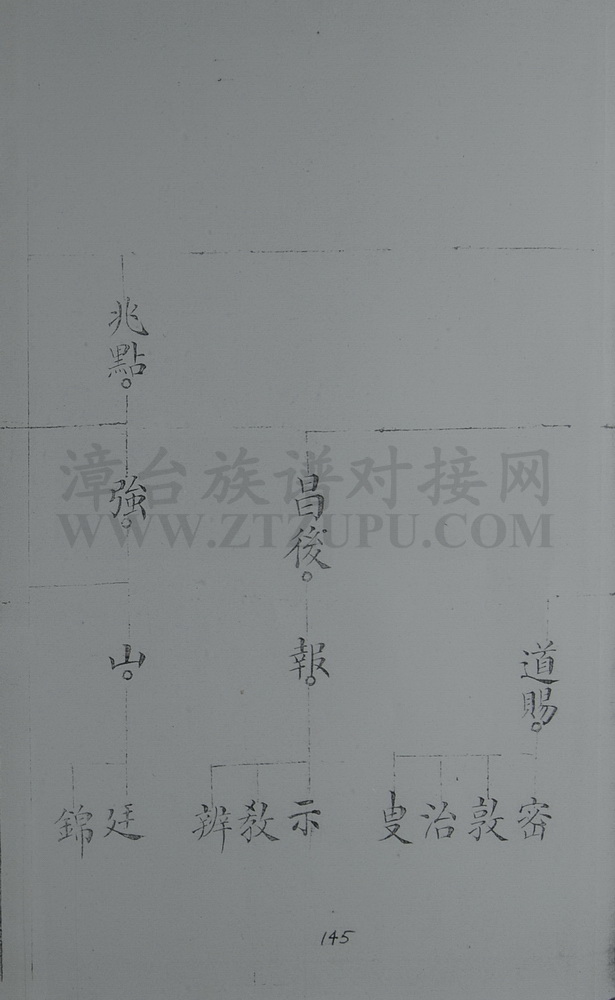 兆點
強
昌後
山
報
道賜
密
敦
治
叟
示
教
辨
廷
錦
漳台族谱对接网
WWW.ZTZUPU.COM
145